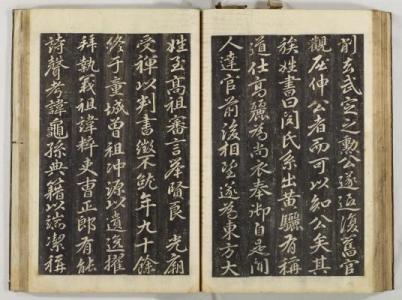 削去武定之勳公遂返復舊官
觀屈伸公者而可以知公矣其
族姓書曰閔氏系出黃驪有稱
道仕高麗為尚衣奉御自是聞
人達官前後相望遂為東方大
姓至高祖審言舉賢良 光廟
受禪以判書徵不就年九十餘
終于童城曾祖冲源以遺逸擢
拜執義祖諱粹吏曹正郎有能
詩聲考諱龜孫典籍以端潔稱